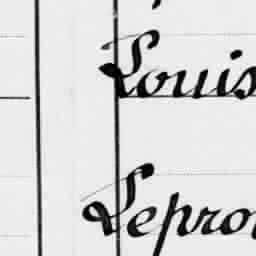 Louis
Lepro